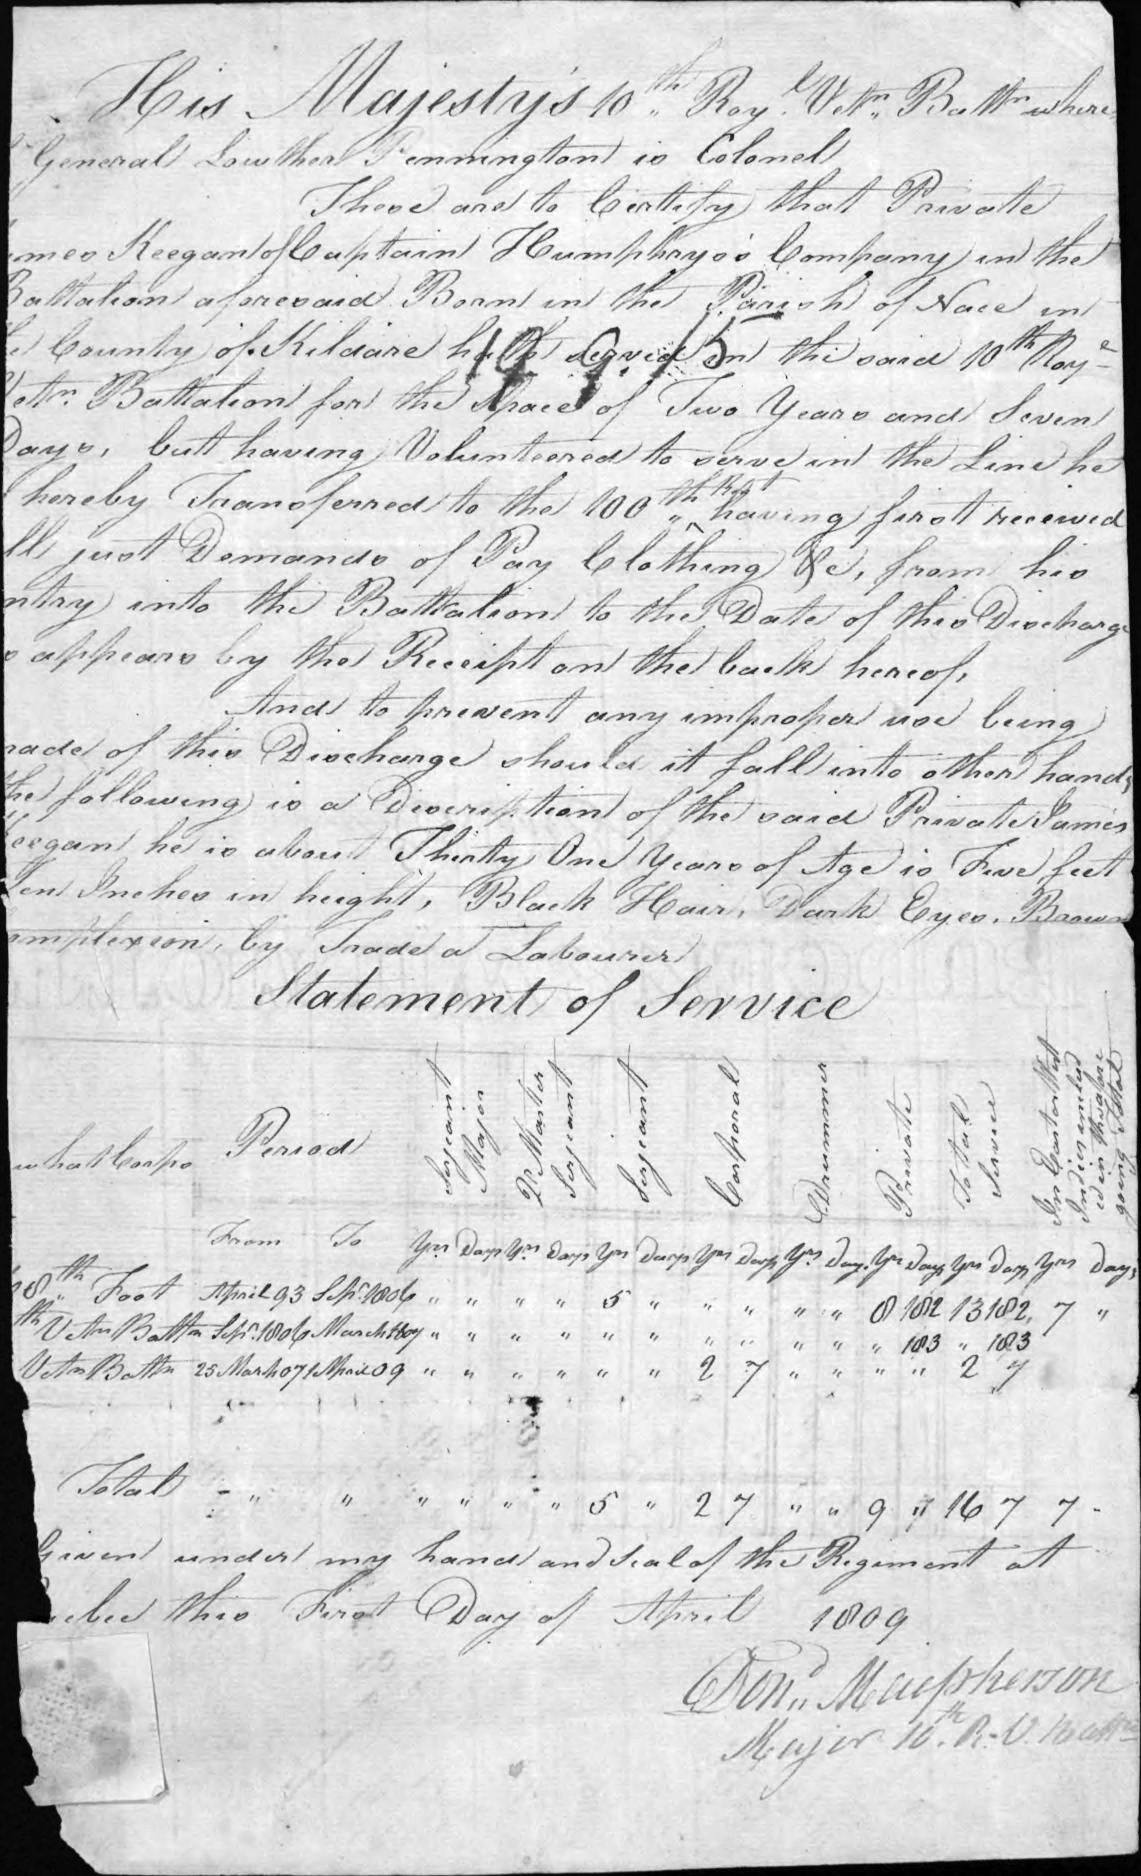 His Majesty's 10th Royl Vetn Battn where
General Lowther Pennington is Colonel
These are to Certify that Private
ames Keegan of Captain Humphrys's Company in the
Battalion aforesaid Born in the Parish of Nace in
County of Kildare hath served in the said 10th Roye
Vetn Battalion for the Space of Two Years and Seven
Days, but having Volunteered to serve in the Line he
hereby Transferred to the 100th Regt having first received
ll just Demands of Pay Clothing &c, from his
ntry into the Battalion to the Date of this Discharge
s appears by the Receipt on the back hereof,
And to prevent any improper use being
made of this Discharge should it fall into other hands
the following is a Description of the said Private James
eegan he is about Thirty One Years of Age is Five feet
Ten Inches in height, Black Hair, Dark Eyes, Brown
omplexion, by Trade a Labourer
19 9 15
Statement of Service
what Corps Period Serjeant Major Qr Master Serjeant Serjeant Corporal Drummer Private Total Service In East or West Indies includ ed in the fore going Total
From To Yrs Days Yrs Days Yrs Days Yrs Days Yrs Days Yrs Days Yrs Days Yrs Days
8th Foot April 93 Sepr 1806 " " " " 5 " " " " " 8 182 13 182 7 "
th Vetn Battn Sepr 1806 March 1807 " " " " " " " " " " " 183 " 183
Vetn Battn 25 March 07 1 April 09 " " " " " " 2 7 " " " " 2 7
Total - " " " " " " 5 " 2 7 " " 9 " 16 7 7 -
Given under my hand and seal of the Regiment at
uebec this First Day of April 1809
Dond Macpherson
Major 10th R. V. Battn